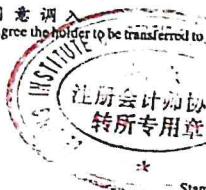 意 调 入
gree the holder to be transferred to
INSTITUTE
注册会计师协
转所专用章
Stam